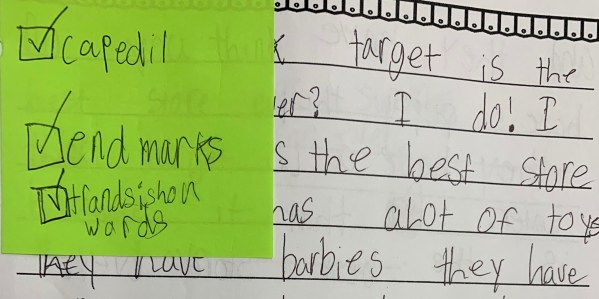 capedil
endmarks
trandsishon
words
target is the
er? I do! I
s the best store
has alot of toys
They have barbies they have